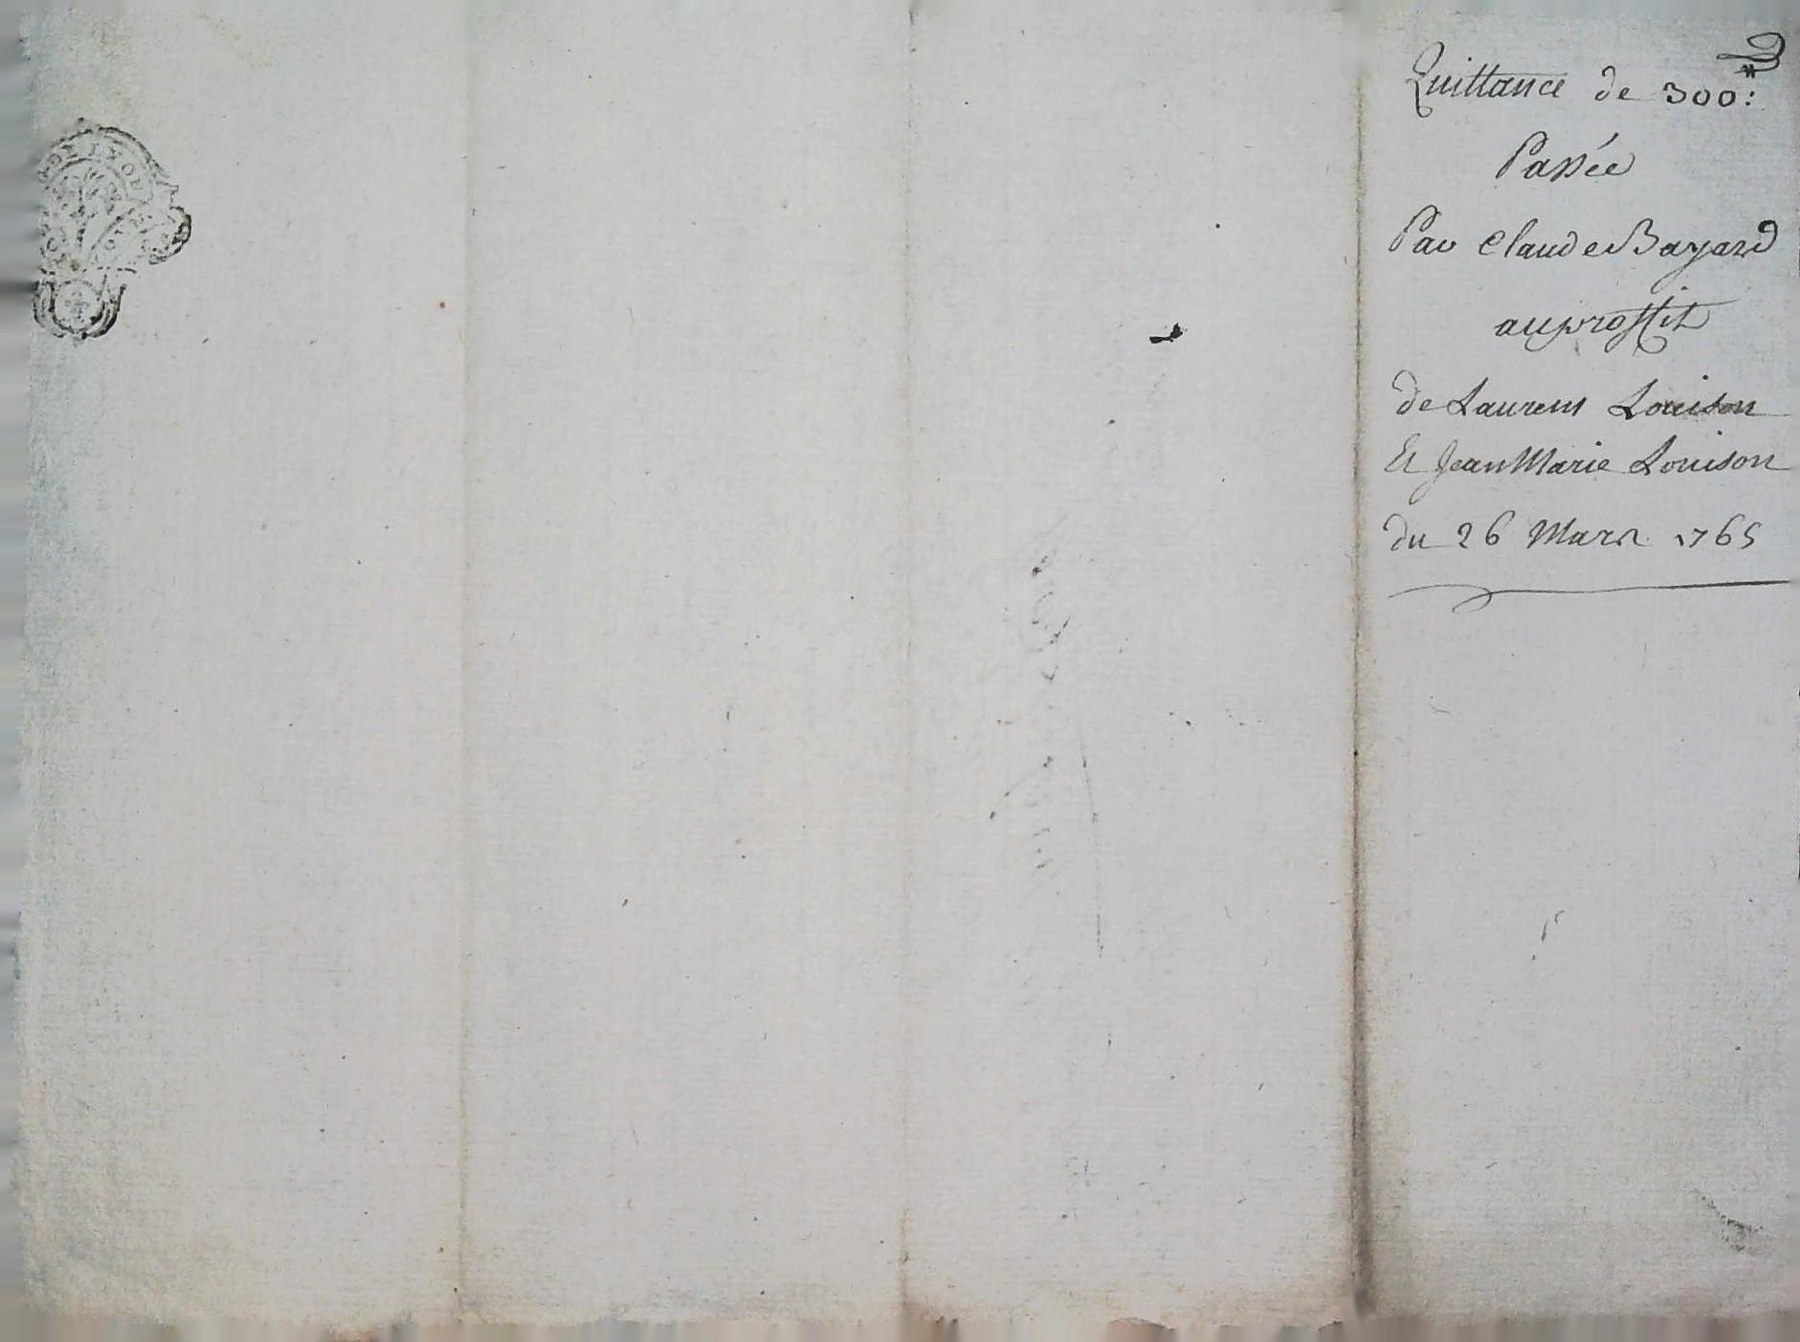 DE LYON
Quittance de 300:
Passée
Par Claude Bayard
au proffit
de Laurens Louison
Et Jean Marie Louison
du 26 Mars 1765